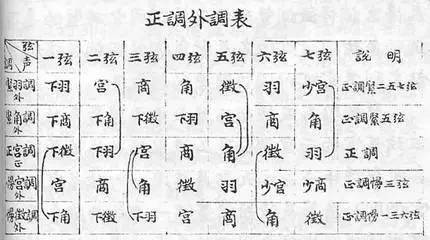 正調外調表
弦 声 調 一弦 二弦 三弦 四弦 五弦 六弦 七弦 說明
緊羽調外 下羽 宮 商 角 徵 羽 少宮 正調緊二五七弦
緊角調外 下商 下角 下徵 下羽 宮 商 角 正調緊五弦
正宮調正 下徵 下羽 宮 商 角 徵 羽 正調
慢宮調外 宮 商 角 徵 羽 少宮 少商 正調慢三弦
慢徵調外 下角 下徵 下羽 宮 商 角 徵 正調慢一三六弦